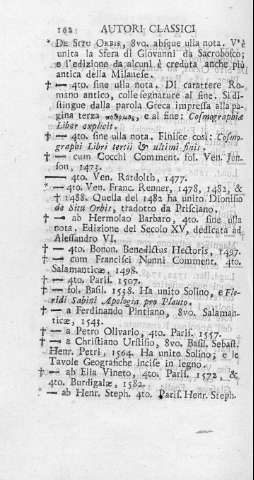 192 AUTORI CLASSICI
* De Situ Orbis, 8vo. absque ulla nota. V'è
unita la Sfera di Giovanni da Sacrobosco;
e l'edizione da alcuni è creduta anche più
antica della Milanese.
† — 4to. sine ulla nota. Di carattere Ro-
mano antico, colle segnature al fine. Si di-
stingue dalla parola Greca impressa alla pa-
gina terza e al fine: Cosmographiæ
Liber explicit.
† — 4to. sine ulla nota. Finisce così: Cosmo-
graphi Libri tertii & ultimi finis.
† — cum Cocchi Comment. fol. Ven. Jen-
son, 1473.
— 4to. Ven. Ratdolth, 1477.
* — 4to. Ven. Franc. Renner, 1478, 1482, &
† 1488. Quella del 1482 ha unito Dionisio
de Situ Orbis, tradotto da Prisciano.
† — ab Hermolao Barbaro, 4to. sine ulla
nota. Edizione del Secolo XV, dedicata ad
Alessandro VI.
† — 4to. Bonon. Benedictus Hectoris, 1497.
† — cum Francisci Nunni Comment. 4to.
Salamanticæ, 1498.
† — 4to. Paris. 1507.
† — fol. Basil. 1538. Ha unito Solino, e Flo-
ridi Sabini Apologia pro Plauto.
† — a Ferdinando Pintiano, 8vo. Salaman-
ticæ, 1543.
† — a Petro Olivario, 4to. Paris. 1557.
† — a Christiano Urstisio, 8vo. Basil. Sebast.
Henr. Petri, 1564. Ha unito Solino; e le
Tavole Geografiche incise in legno.
† — ab Elia Vineto, 4to. Paris. 1572, &
4to. Burdigalæ, 1582.
* — ab Henr. Steph. 4to. Paris. Henr. Steph.